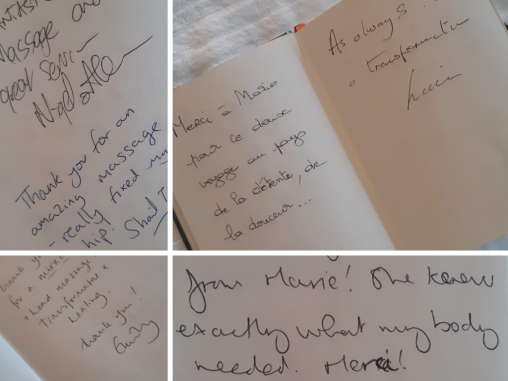 massage and
great servi
Thank you for an
amazing massage
- really fixed my
hip!
Merci à Marie
pour ce doux
voyage au pays
de la détente, de
la douceur...
As always
a transformation
thank you
for a
+ head massage.
Transformative
Healing.
thank you!
from Marie! She knew
exactly what my body
needed. Merci!